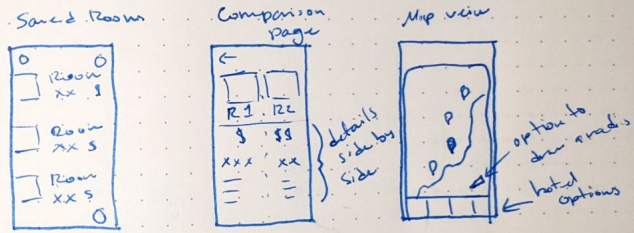 Saved Rooms
Room
xx $
Room
xx $
Room
xx $
Comparison
page
←
R1 R2
$ $$
xxx xx
details
side by
side
Map view
option to
draw a radis
hotel
options